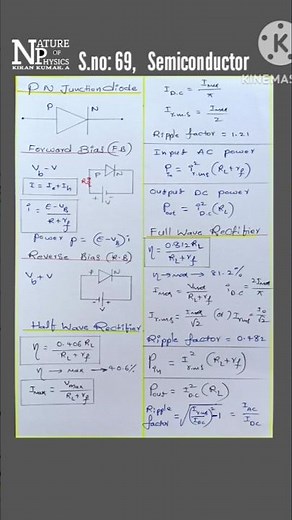 NATURE
OF
PHYSICS
KIRAN KUMAR. A
S.no: 69, Semiconductor
KINEMAS
P N Junction diode
P N
Forward Bias (F.B)
V_b - V
I = I_e + I_h
P N
R
V
i = (E - V_b) / (R + r_f)
Power P = (E - V_b) i
Reverse Bias (R.B)
V_b + V
Half Wave Rectifier
η = 0.406 R_L / (R_L + r_f)
η → max → 40.6%
I_max = V_max / (R_L + r_f)
I_D.C = I_max / π
I_r.m.s = I_max / 2
Ripple factor = 1.21
Input AC power
P_in = i²_r.m.s (R_L + r_f)
Output DC power
P_out = i²_D.C (R_L)
Full Wave Rectifier
η = 0.812 R_L / (R_L + r_f)
η → max → 81.2%
I_max = V_max / (R_L + r_f) i_D.C = 2I_max / π
I_r.m.s = I_max / √2 (or) I_rms = I_0 / √2
Ripple factor = 0.482
P_in = I²_r.m.s (R_L + r_f)
P_out = I²_D.C (R_L)
Ripple factor = √((I_rms / I_DC)² - 1) = I_AC / I_DC